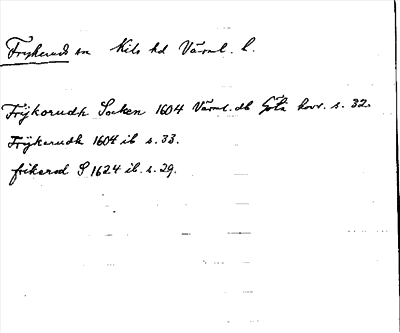 Frykerud sn Kils hd Värml. l.
Frÿkorudh Socken 1604 Värml. db Göta hovr. s. 32.
Frÿkerudh 1604 ib s. 33.
frikerod S 1624 ib. s. 29.